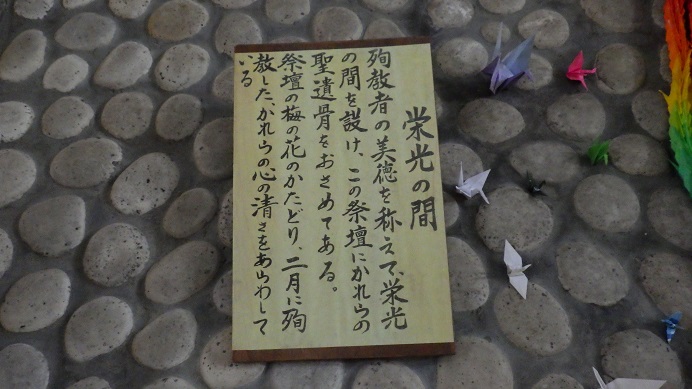 栄光の間
殉教者の美徳を称えて、栄光
の間を設け、この祭壇にかれらの
聖遺骨をおさめてある。
祭壇の梅の花のかたどり、二月に殉
教した、かれらの心の清さをあらわして
いる